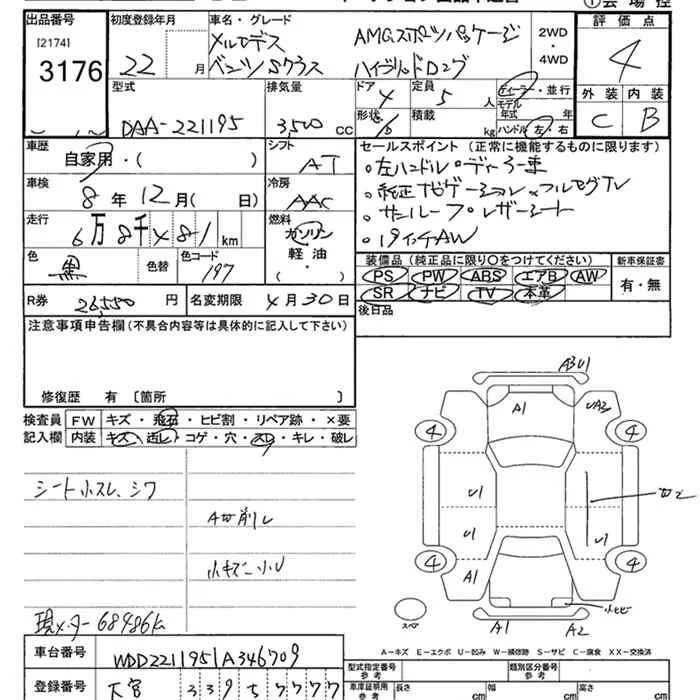 出品番号 初度登録年月 車名・グレード 評価点
[2174] メルセデス AMGスポーツパッケージ 2WD・4WD 4
3176 22 月 ベンツSクラス ハイブリッドロング 外装 内装
型式 排気量 ドア 4 定員 5 人 ディーラー・並行 C B
DAA-221195 3,500 cc 形状 積載 kg モデル年式 年
ハンドル 左・右
車歴 自家用・( ) シフト AT セールスポイント (正常に機能するものに限ります)
車検 8 年 12 月( 日) 冷房 AAC ・左ハンドル・ディーラー車
・純正ナビゲーション・フルセグTV
走行 6万8千481 km 燃料 ガソリン ・サンルーフ・レザーシート
軽油 ・19インチAW
色 黒 色替 色コード 197 装備品 (純正品に限り○をつけてください) 新車保証書
PS PW ABS エアB AW 有・無
R券 26,550 円 名変期限 4月30日 SR ナビ TV 本革
注意事項申告欄 (不具合内容等は具体的に記入して下さい) 後日品
修復歴 有 〔箇所 〕
検査員 FW キズ・飛石・ヒビ割・リペア跡・×要
記入欄 内装 キズ・汚レ・コゲ・穴・スレ・キレ・破レ
シート小スレ、シワ
A切削レ
小キズ小U
現メーター 68486k
A3U1
A1 UA2
4 4
U1
U1 U1
4 A1 4
スペア A1 A2 小ヒビ
A-キズ E-エクボ U-凹み W-補修跡 S-サビ C-腐食 XX-交換済
車台番号 WDD2211951A346709 型式指定番号 参考 類別区分番号 参考
登録番号 大宮 339 5 7777 車庫証明用 参考 長さ cm 幅 cm 高さ cm